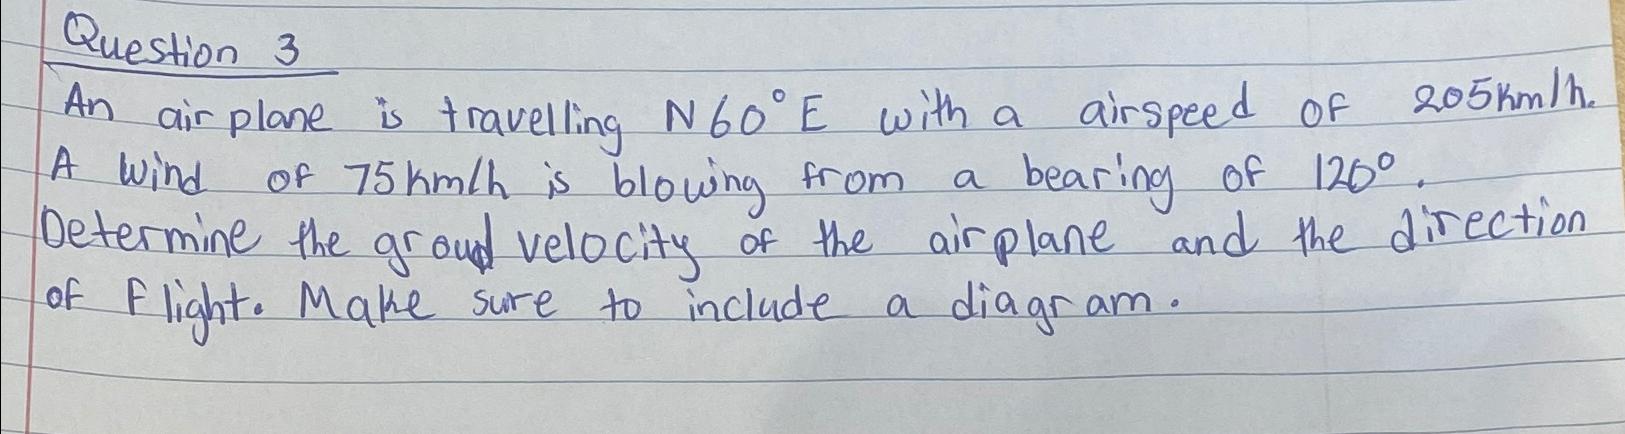 Question 3
An airplane is travelling N60°E with a airspeed of 205km/h.
A wind of 75km/h is blowing from a bearing of 120°.
Determine the groud velocity of the airplane and the direction
of flight. Make sure to include a diagram.